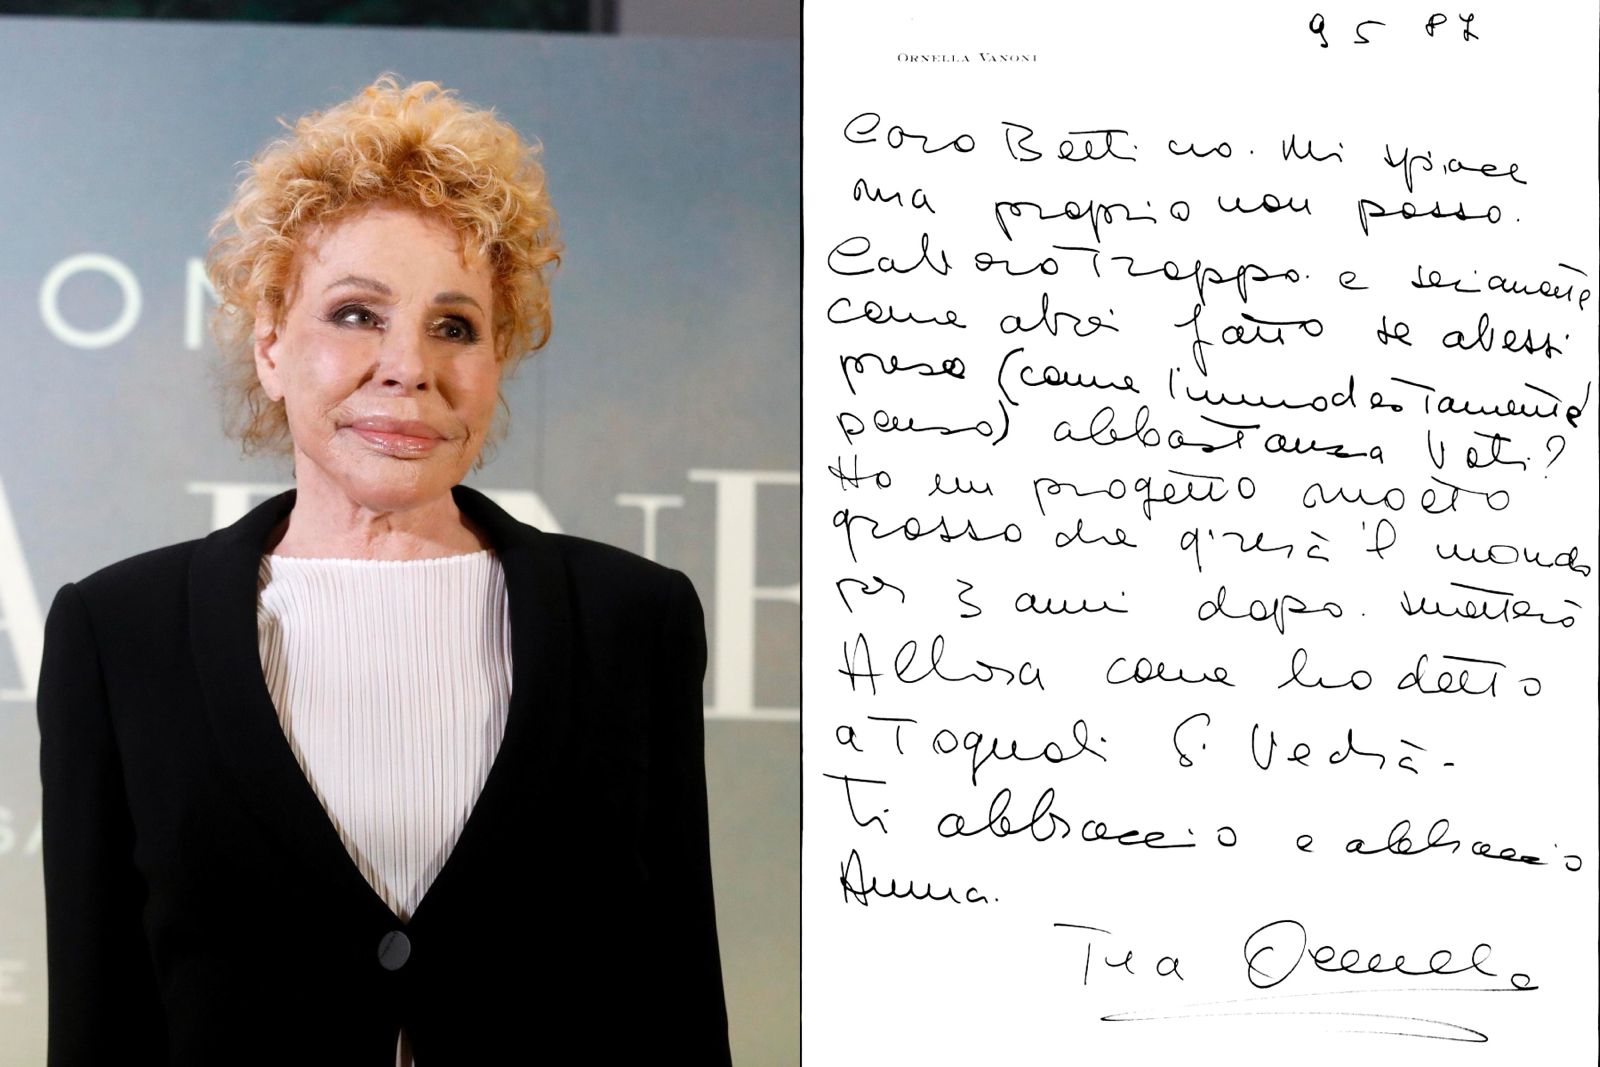 ON
ORNELLA VANONI
9 5 87
Caro Bettino. Mi spiace
ma proprio non posso.
Lavoro Troppo. e seriamente
come avrei fatto se avessi
preso (come immodestamente
penso) abbastanza Voti?
Ho un progetto molto
grosso che girerà il mondo
per 3 anni dopo. smetterò
Allora come ho detto
a Tognoli Si Vedrà-
Ti abbraccio e abbraccio
Anna.
Tua Ornella